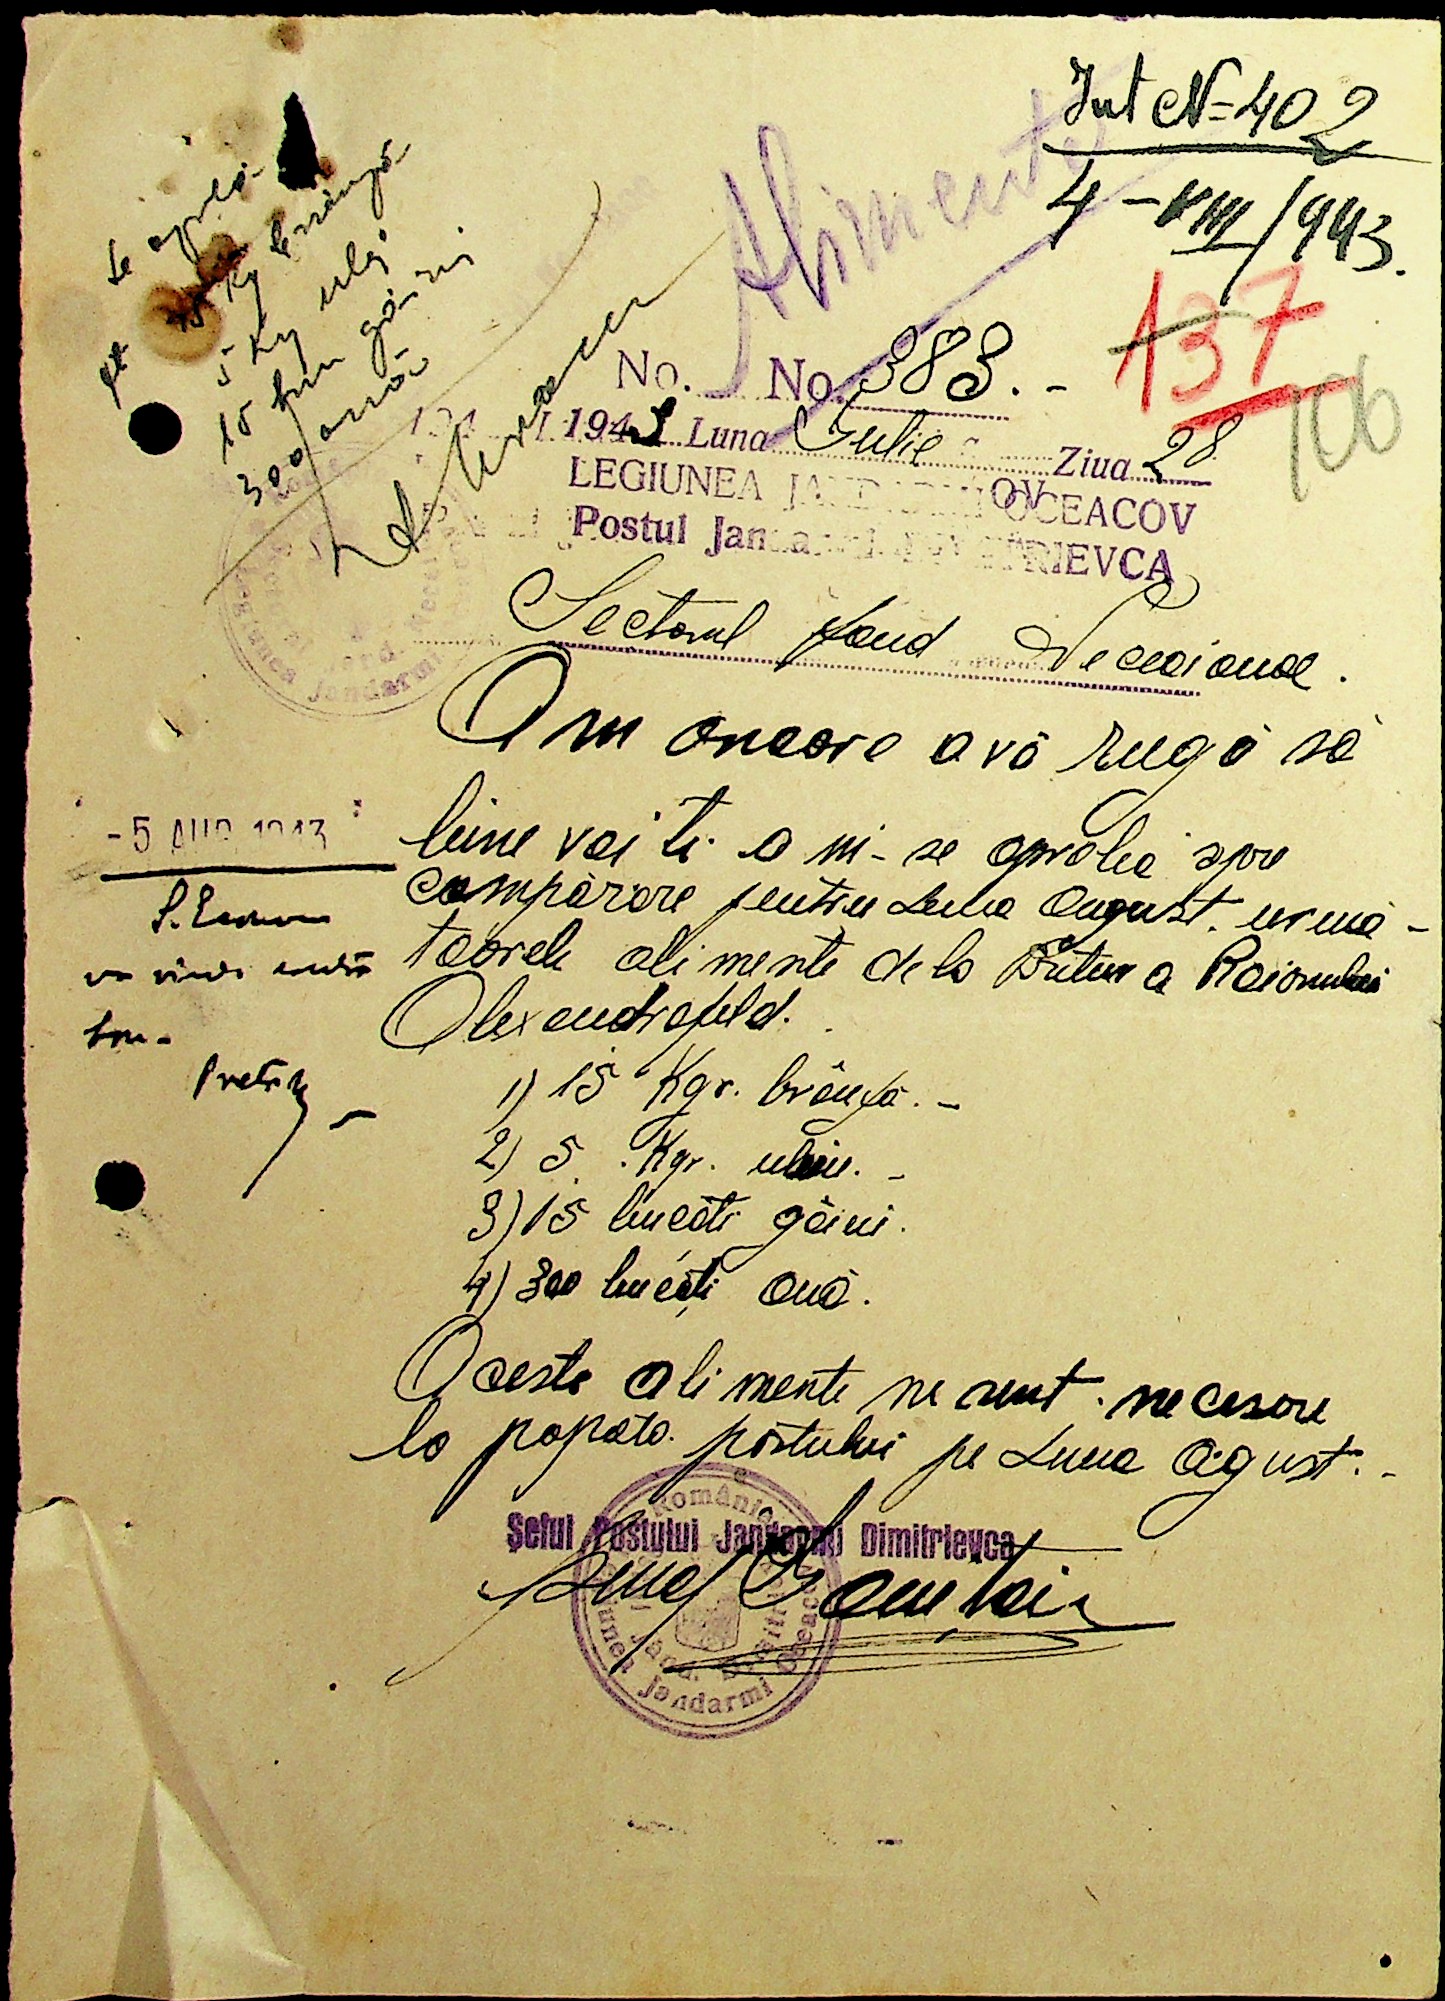 Int N=402
4-VIII/943.
Alimente
137
106
Se aprobă
pe 15 kg brânză
5 kg ulei
15 buc găini
300 ouă
No. No. 383.-
1943 Luna Iulie Ziua 28
LEGIUNEA JANDARMI OCEACOV
Postul Jandarmi DIMITRIEVCA
Sectorul Jand
Am onoare a vă rugă să
bine voiti a ni-se aproba spre
cumpărare pentru Luna August. urmă-
toarele alimente dela Pretura Raionului
Alexandrafeld.
1) 15 Kgr. brânză.-
2) 5. Kgr. uleiu.-
3) 15 bucăti găini.
4) 300 bucăti ouă.
Aceste alimente ne sunt. necesare
la popota. postului pe Luna August.-
-5 AUG 1943
va vinde
Pretor
Şeful Postului Jandarmi Dimitrievca
România
Legiunea Jandarmi Oceacov
Legiunea Jandarmi